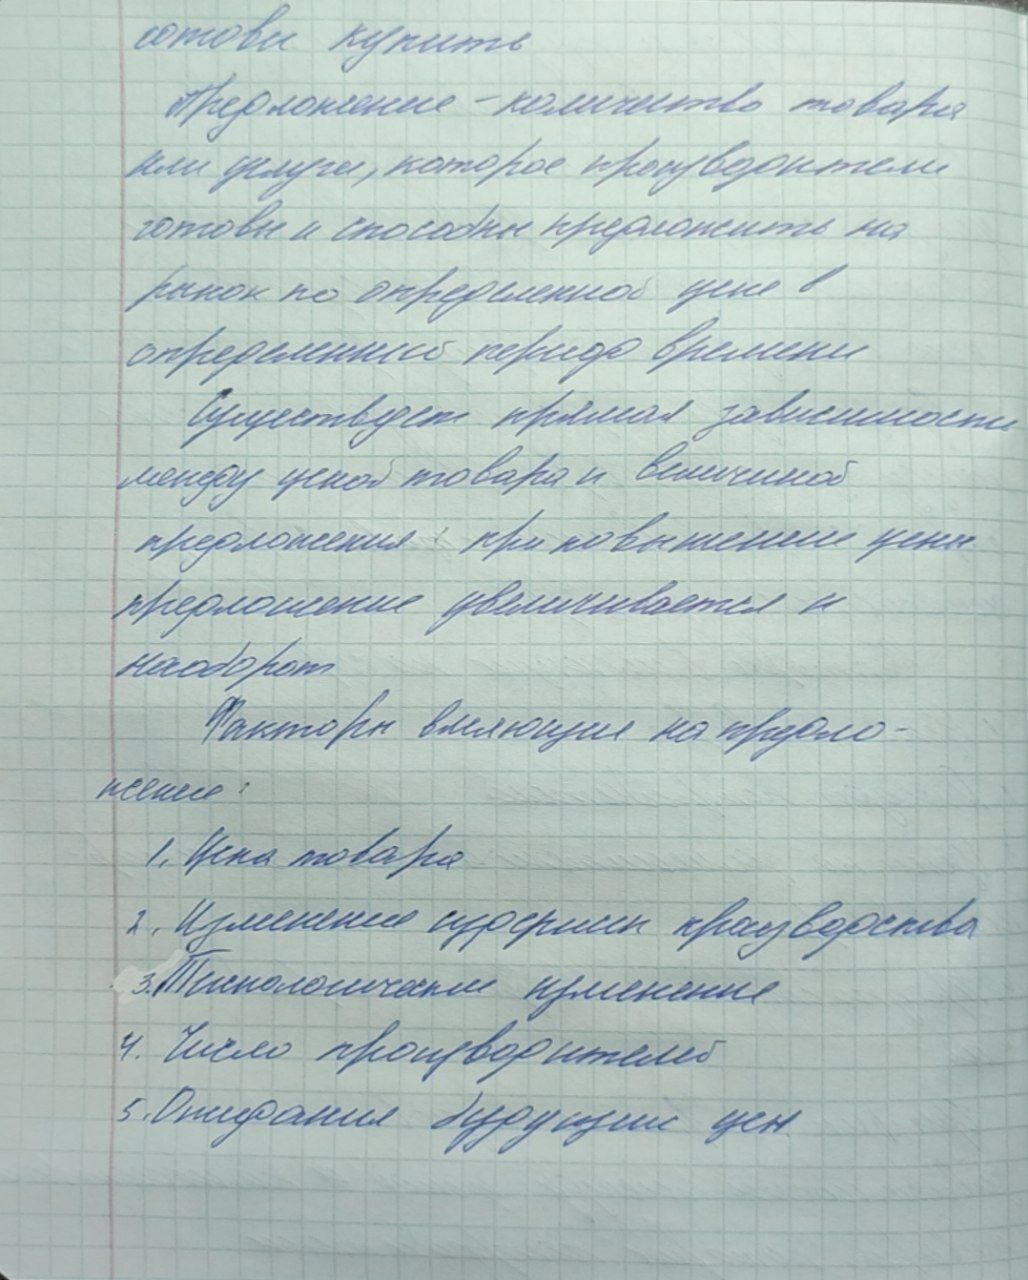 готовы купить
Предложение - количество товара
или услуги, которое производители
готовы и способны предложить на
рынок по определенной цене в
определенный период времени
Существует прямая зависимость
между ценой товара и величиной
предложения: при повышение цены
предложение увеличивается и
наоборот
Факторы влияющие на предло-
жение:
1. Цена товара
2. Изменение издержки производства
3. Технологические изменение
4. Число производителей
5. Ожидания будущих цен